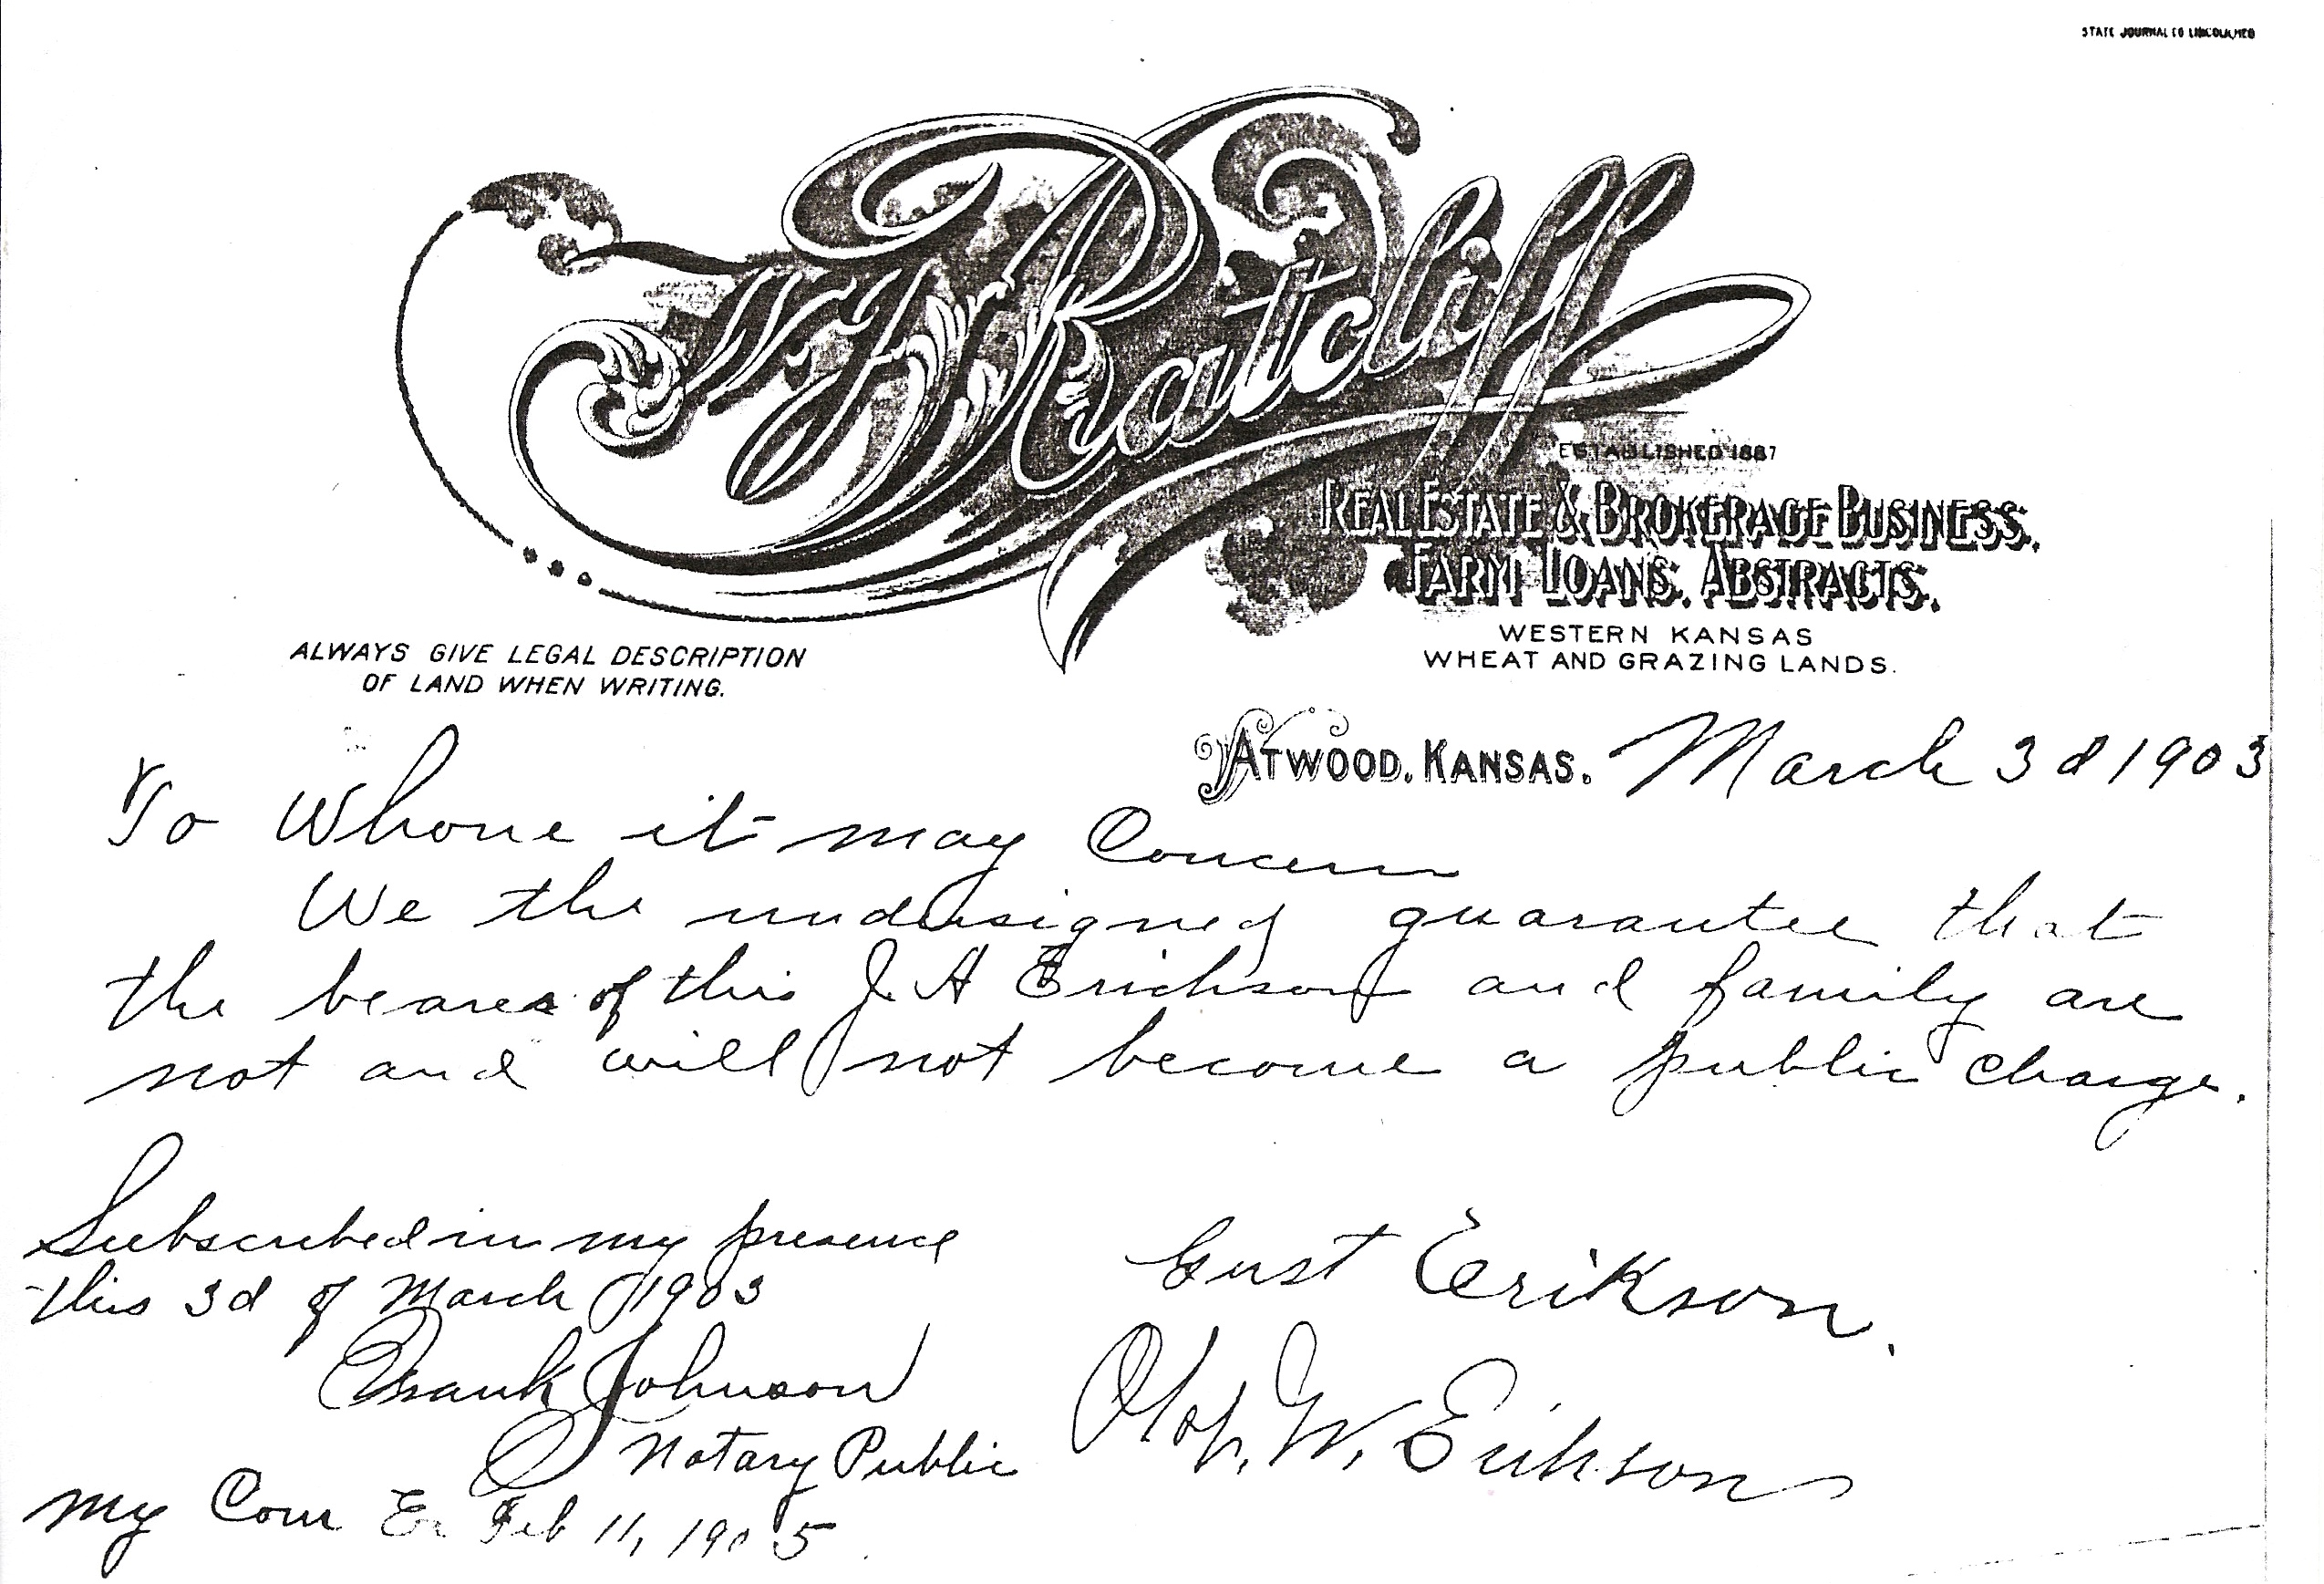 STATE JOURNAL CO LINCOLN, NEB
W. J. Ratcliff
ESTABLISHED 1887
REAL ESTATE & BROKERAGE BUSINESS.
FARM LOANS. ABSTRACTS.
WESTERN KANSAS
WHEAT AND GRAZING LANDS.
ALWAYS GIVE LEGAL DESCRIPTION
OF LAND WHEN WRITING.
ATWOOD, KANSAS. March 3d 1903
To Whome it may Concern
We the undersigned guarantee that
the bearer of this J. A Erickson and family are
not and will not become a public charge.
Subscribed in my presence
this 3d of March 1903
Frank Johnson
Notary Public
My Com Ex Feb 11, 1905
Gust Erikson.
Olof. W. Erikson